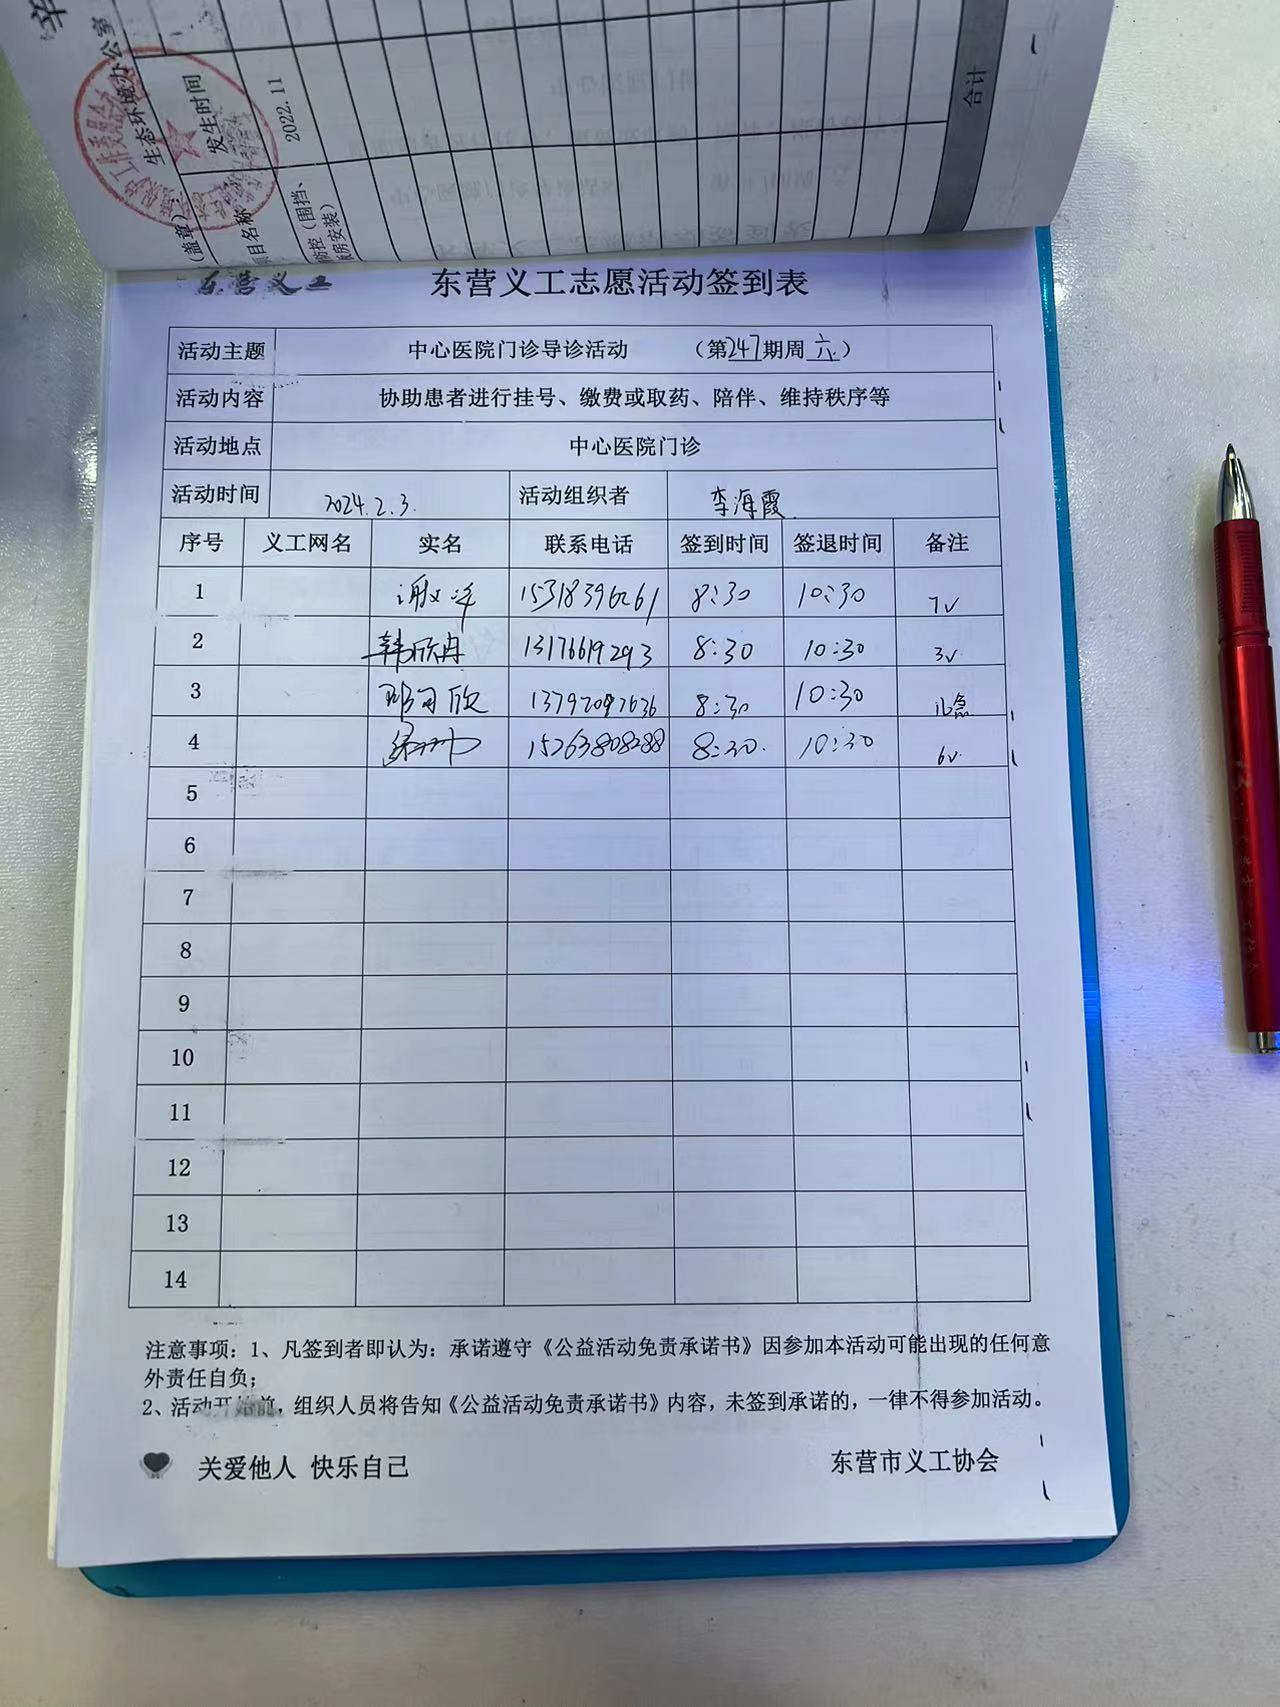 生态环境办公室
（盖章）：
发生时间
项目名称
2022.11
防控（围挡、
房安装）
合计
东营义工
东营义工志愿活动签到表
活动主题 中心医院门诊导诊活动 （第247期周六）
活动内容 协助患者进行挂号、缴费或取药、陪伴、维持秩序等
活动地点 中心医院门诊
活动时间 2024.2.3. 活动组织者 李海霞
序号 义工网名 实名 联系电话 签到时间 签退时间 备注
1 15318396261 8:30 10:30 7v
2 韩欣冉 13176619293 8:30 10:30 3v
3 8:30 10:30 儿急
4 15263808288 8:30. 10:30 6v
5
6
7
8
9
10
11
12
13
14
注意事项：1、凡签到者即认为：承诺遵守《公益活动免责承诺书》因参加本活动可能出现的任何意
外责任自负；
2、活动开始前，组织人员将告知《公益活动免责承诺书》内容，未签到承诺的，一律不得参加活动。
关爱他人 快乐自己 东营市义工协会